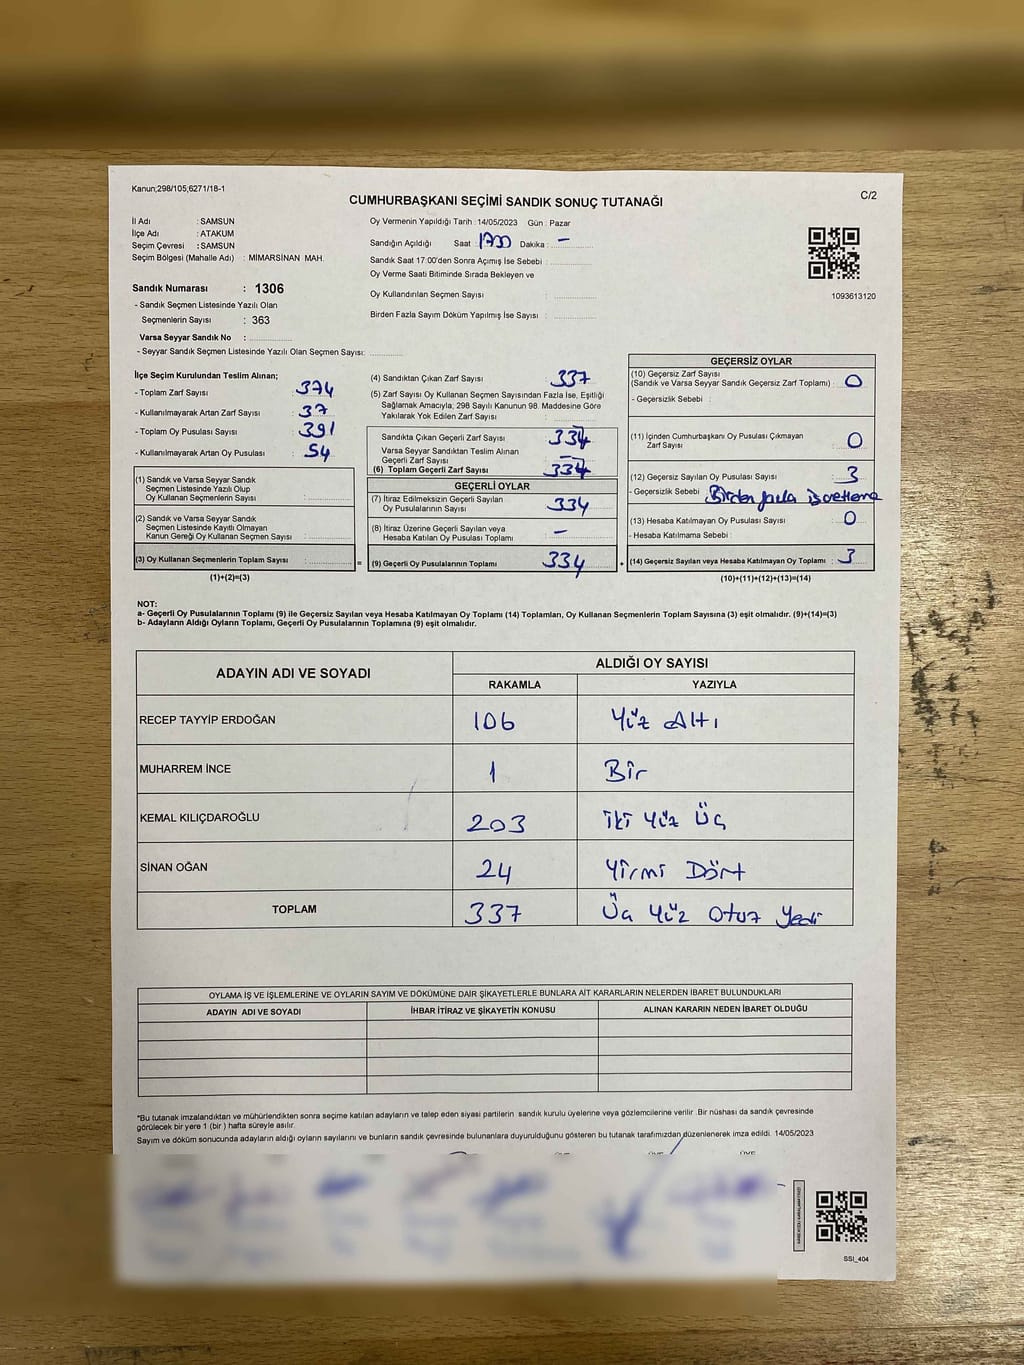 Kanun;298/105;6271/18-1
C/2
CUMHURBAŞKANI SEÇİMİ SANDIK SONUÇ TUTANAĞI
İl Adı : SAMSUN
İlçe Adı : ATAKUM
Seçim Çevresi : SAMSUN
Seçim Bölgesi (Mahalle Adı) : MIMARSİNAN MAH.
Sandık Numarası : 1306
- Sandık Seçmen Listesinde Yazılı Olan
Seçmenlerin Sayısı : 363
Varsa Seyyar Sandık No :
- Seyyar Sandık Seçmen Listesinde Yazılı Olan Seçmen Sayısı:
Oy Vermenin Yapıldığı Tarih : 14/05/2023 Gün : Pazar
Sandığın Açıldığı Saat : 1700 Dakika : –
Sandık Saat 17.00'den Sonra Açımış İse Sebebi :
Oy Verme Saati Bitiminde Sırada Bekleyen ve
Oy Kullandırılan Seçmen Sayısı :
Birden Fazla Sayım Döküm Yapılmış İse Sayısı :
1093613120
İlçe Seçim Kurulundan Teslim Alınan;
- Toplam Zarf Sayısı : 374
- Kullanılmayarak Artan Zarf Sayısı : 37
- Toplam Oy Pusulası Sayısı : 391
- Kullanılmayarak Artan Oy Pusulası : 54
(1) Sandık ve Varsa Seyyar Sandık
Seçmen Listesinde Yazılı Olup
Oy Kullanan Seçmenlerin Sayısı :
(2) Sandık ve Varsa Seyyar Sandık
Seçmen Listesinde Kayıtlı Olmayan
Kanun Gereği Oy Kullanan Seçmen Sayısı :
(3) Oy Kullanan Seçmenlerin Toplam Sayısı :
(1)+(2)=(3)
(4) Sandıktan Çıkan Zarf Sayısı : 337
(5) Zarf Sayısı Oy Kullanan Seçmen Sayısından Fazla İse, Eşitliği
Sağlamak Amacıyla; 298 Sayılı Kanunun 98. Maddesine Göre
Yakılarak Yok Edilen Zarf Sayısı :
Sandıkta Çıkan Geçerli Zarf Sayısı : 334
Varsa Seyyar Sandıktan Teslim Alınan
Geçerli Zarf Sayısı : –
(6) Toplam Geçerli Zarf Sayısı : 334
GEÇERLİ OYLAR
(7) İtiraz Edilmeksizin Geçerli Sayılan
Oy Pusulalarının Sayısı : 334
(8) İtiraz Üzerine Geçerli Sayılan veya
Hesaba Katılan Oy Pusulası Toplamı : –
= (9) Geçerli Oy Pusulalarının Toplamı 334 +
GEÇERSİZ OYLAR
(10) Geçersiz Zarf Sayısı
(Sandık ve Varsa Seyyar Sandık Geçersiz Zarf Toplamı) : 0
- Geçersizlik Sebebi :
(11) İçinden Cumhurbaşkanı Oy Pusulası Çıkmayan
Zarf Sayısı : 0
(12) Geçersiz Sayılan Oy Pusulası Sayısı : 3
- Geçersizlik Sebebi : Birden fazla işaretleme
(13) Hesaba Katılmayan Oy Pusulası Sayısı : 0
- Hesaba Katılmama Sebebi :
(14) Geçersiz Sayılan veya Hesaba Katılmayan Oy Toplamı : 3
(10)+(11)+(12)+(13)=(14)
NOT:
a- Geçerli Oy Pusulalarının Toplamı (9) ile Geçersiz Sayılan veya Hesaba Katılmayan Oy Toplamı (14) Toplamları, Oy Kullanan Seçmenlerin Toplam Sayısına (3) eşit olmalıdır. (9)+(14)=(3)
b- Adayların Aldığı Oyların Toplamı, Geçerli Oy Pusulalarının Toplamına (9) eşit olmalıdır.
ADAYIN ADI VE SOYADI ALDIĞI OY SAYISI
RAKAMLA YAZIYLA
RECEP TAYYİP ERDOĞAN 106 Yüz Altı
MUHARREM İNCE 1 Bir
KEMAL KILIÇDAROĞLU 203 İki Yüz Üç
SİNAN OĞAN 24 Yirmi Dört
TOPLAM 337 Üç Yüz Otuz Yedi
OYLAMA İŞ VE İŞLEMLERİNE VE OYLARIN SAYIM VE DÖKÜMÜNE DAİR ŞİKAYETLERLE BUNLARA AİT KARARLARIN NELERDEN İBARET BULUNDUKLARI
ADAYIN ADI VE SOYADI İHBAR İTİRAZ VE ŞİKAYETİN KONUSU ALINAN KARARIN NEDEN İBARET OLDUĞU
*Bu tutanak imzalandıktan ve mühürlendikten sonra seçime katılan adayların ve talep eden siyasi partilerin sandık kurulu üyelerine veya gözlemcilerine verilir .Bir nüshası da sandık çevresinde
görülecek bir yere 1 (bir ) hafta süreyle asılır.
Sayım ve döküm sonucunda adayların aldığı oyların sayılarını ve bunların sandık çevresinde bulunanlara duyurulduğunu gösteren bu tutanak tarafımızdan düzenlenerek imza edildi. 14/05/2023
SSI_404